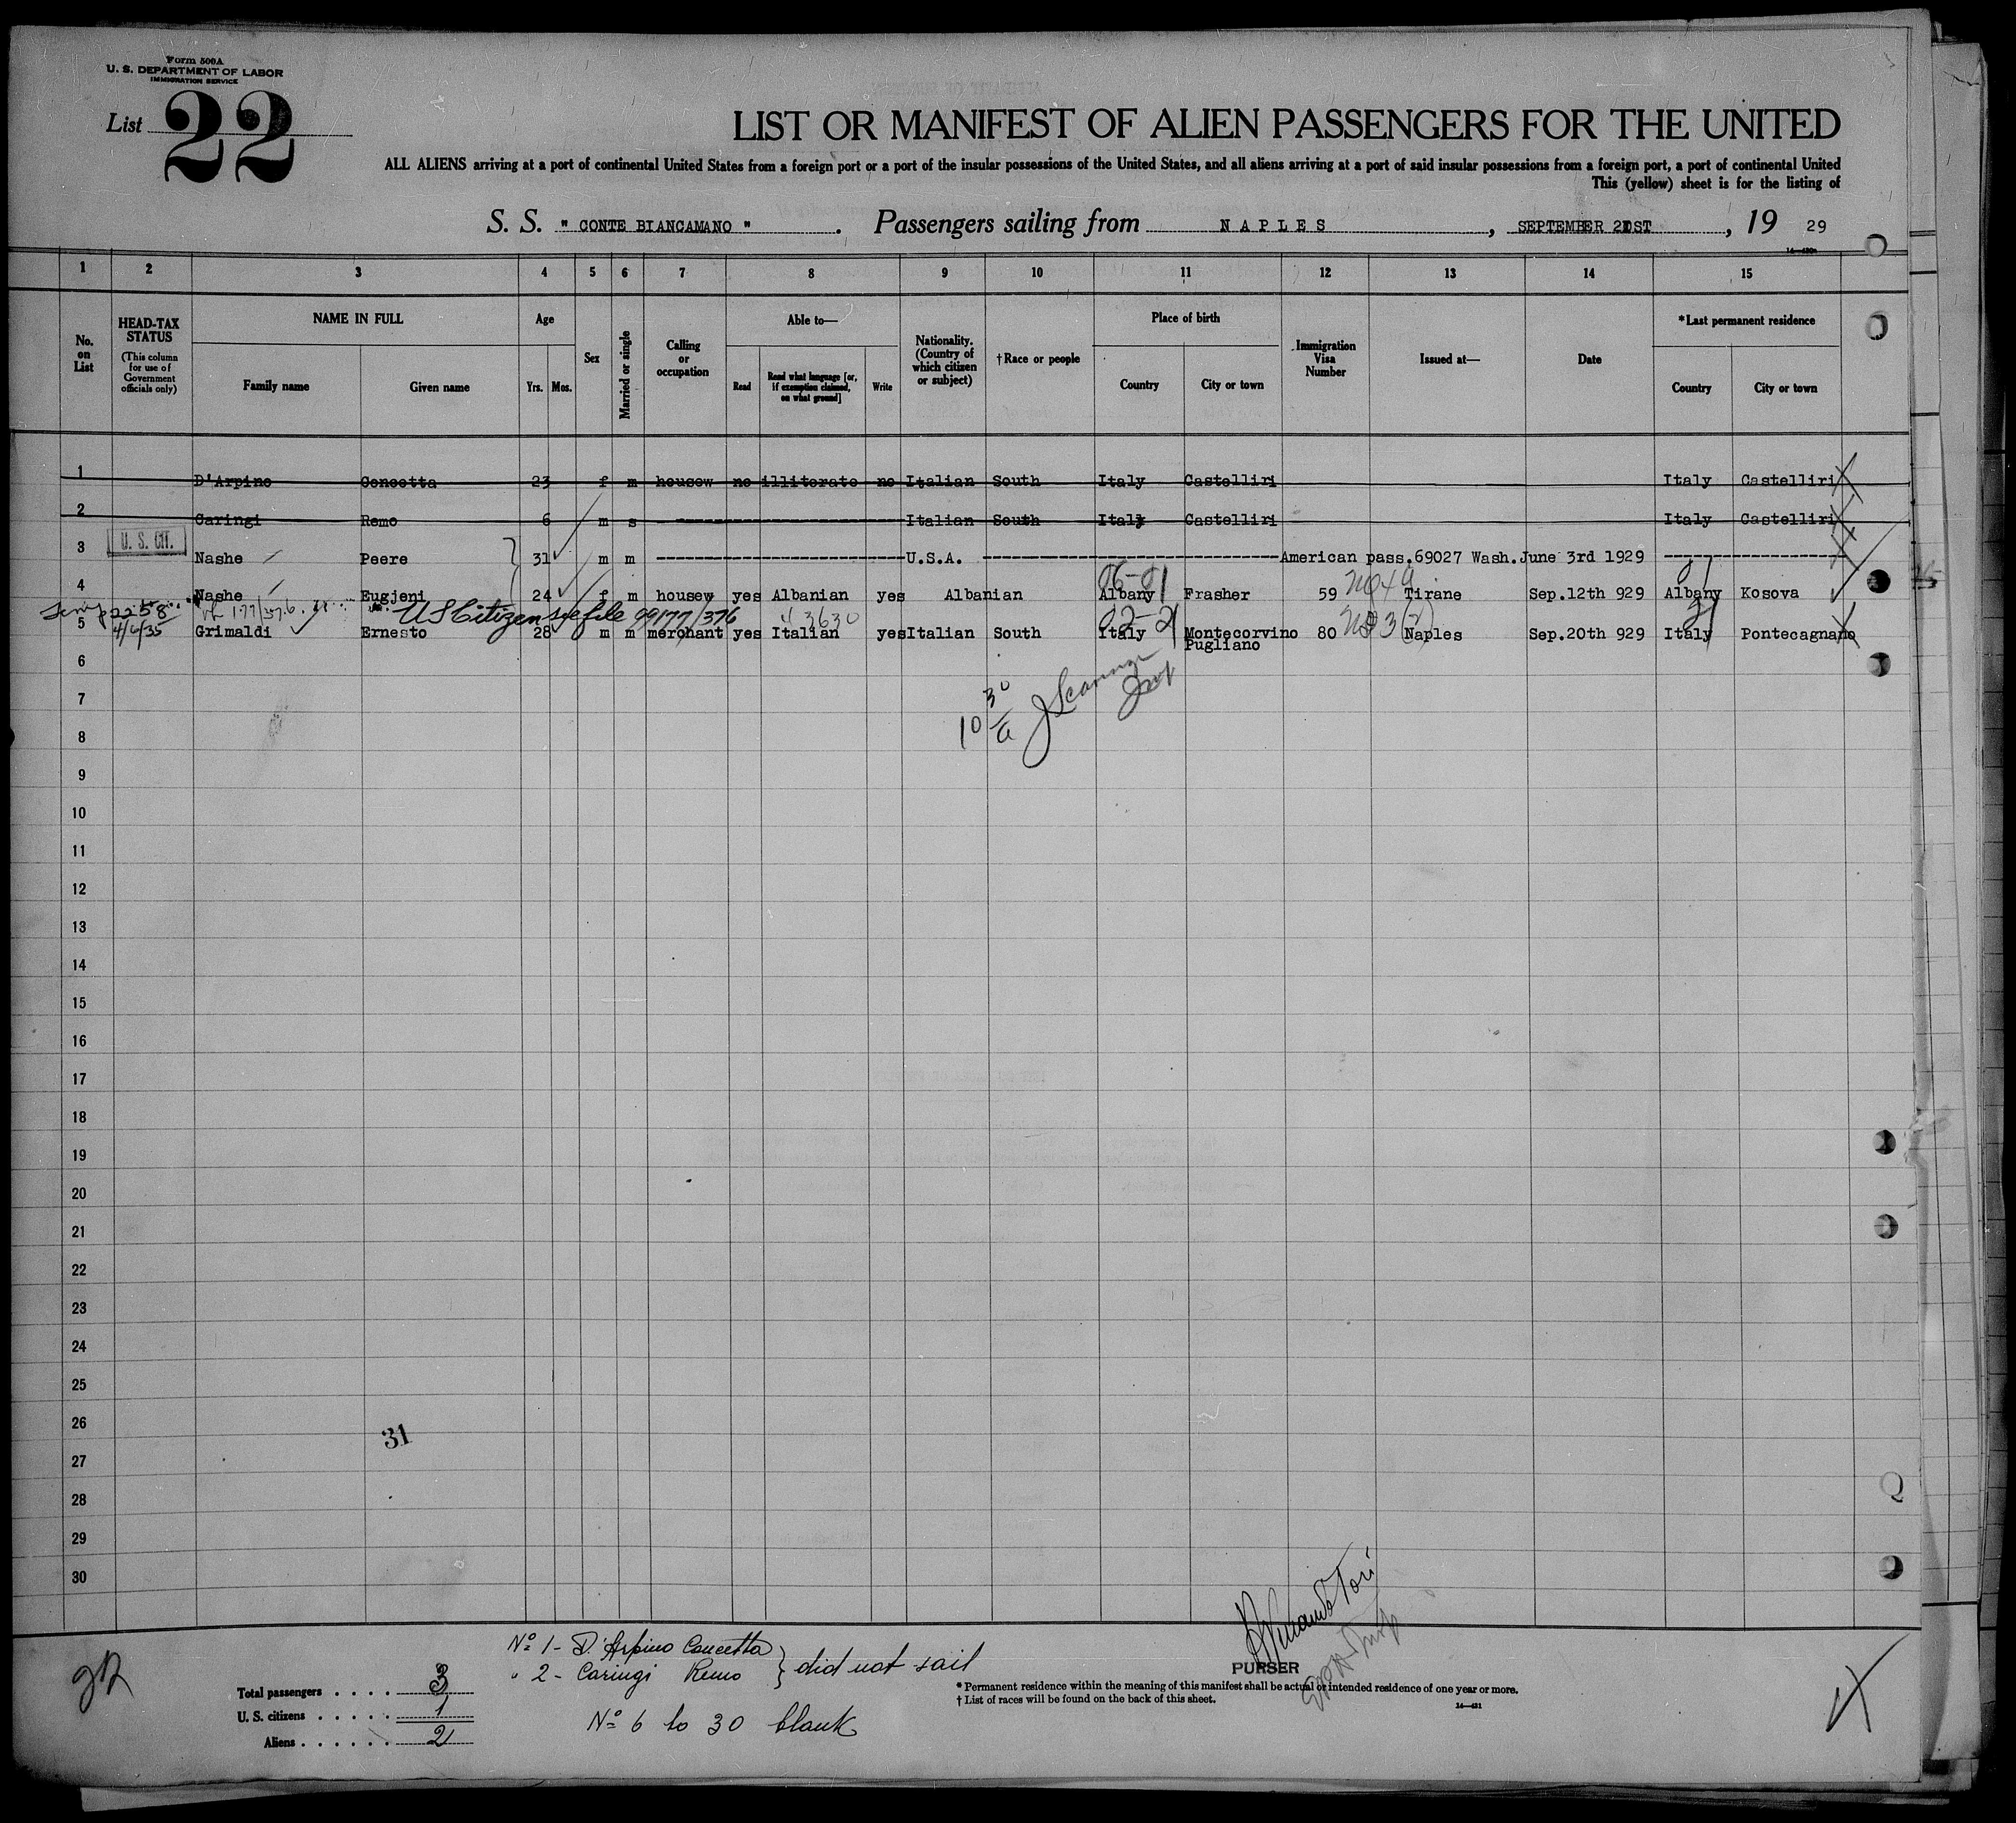 Form 500A
U. S. DEPARTMENT OF LABOR
IMMIGRATION SERVICE
List 22
LIST OR MANIFEST OF ALIEN PASSENGERS FOR THE UNITED
ALL ALIENS arriving at a port of continental United States from a foreign port or a port of the insular possessions of the United States, and all aliens arriving at a port of said insular possessions from a foreign port, a port of continental United
This (yellow) sheet is for the listing of
S. S. " CONTE BIANCAMANO ". Passengers sailing from NAPLES, SEPTEMBER 21ST, 19 29
1 2 3 4 5 6 7 8 9 10 11 12 13 14 15
No. on List
HEAD-TAX STATUS
(This column for use of Government officials only)
NAME IN FULL
Family name
Given name
Age
Yrs.
Mos.
Sex
Married or single
Calling or occupation
Able to—
Read
Read what language [or, if exemption claimed, on what ground]
Write
Nationality. (Country of which citizen or subject)
†Race or people
Place of birth
Country
City or town
Immigration Visa Number
Issued at—
Date
*Last permanent residence
Country
City or town
1 D'Arpino Concetta 23 f m housew no illiterate no Italian South Italy Castelliri Italy Castelliri
2 Caringi Remo 6 m s Italian South Italy Castelliri Italy Castelliri
U. S. Cit.
3 Nashe Peere 31 m m U.S.A. American pass.69027 Wash.June 3rd 1929
06-01
4 Nashe Eugjeni 24 f m housew yes Albanian yes Albanian Albany Frasher 59 Tirane Sep.12th 929 Albany Kosova
2258 US Citizen see file 99177/376 43630 02-21
4/6/35
5 Grimaldi Ernesto 28 m m merchant yes Italian yes Italian South Italy Montecorvino Pugliano 80 Naples Sep.20th 929 Italy Pontecagnano
6
7
10 30/a
8
9
10
11
12
13
14
15
16
17
18
19
20
21
22
23
24
25
26
31
27
28
29
30
Nº 1 - D'Arpino Concetta
" 2 - Caringi Remo } did not sail
Nº 6 to 30 blank
Total passengers . . . . 3
U. S. citizens . . . . . 1
Aliens . . . . . . 2
PURSER
* Permanent residence within the meaning of this manifest shall be actual or intended residence of one year or more.
† List of races will be found on the back of this sheet.
14—431